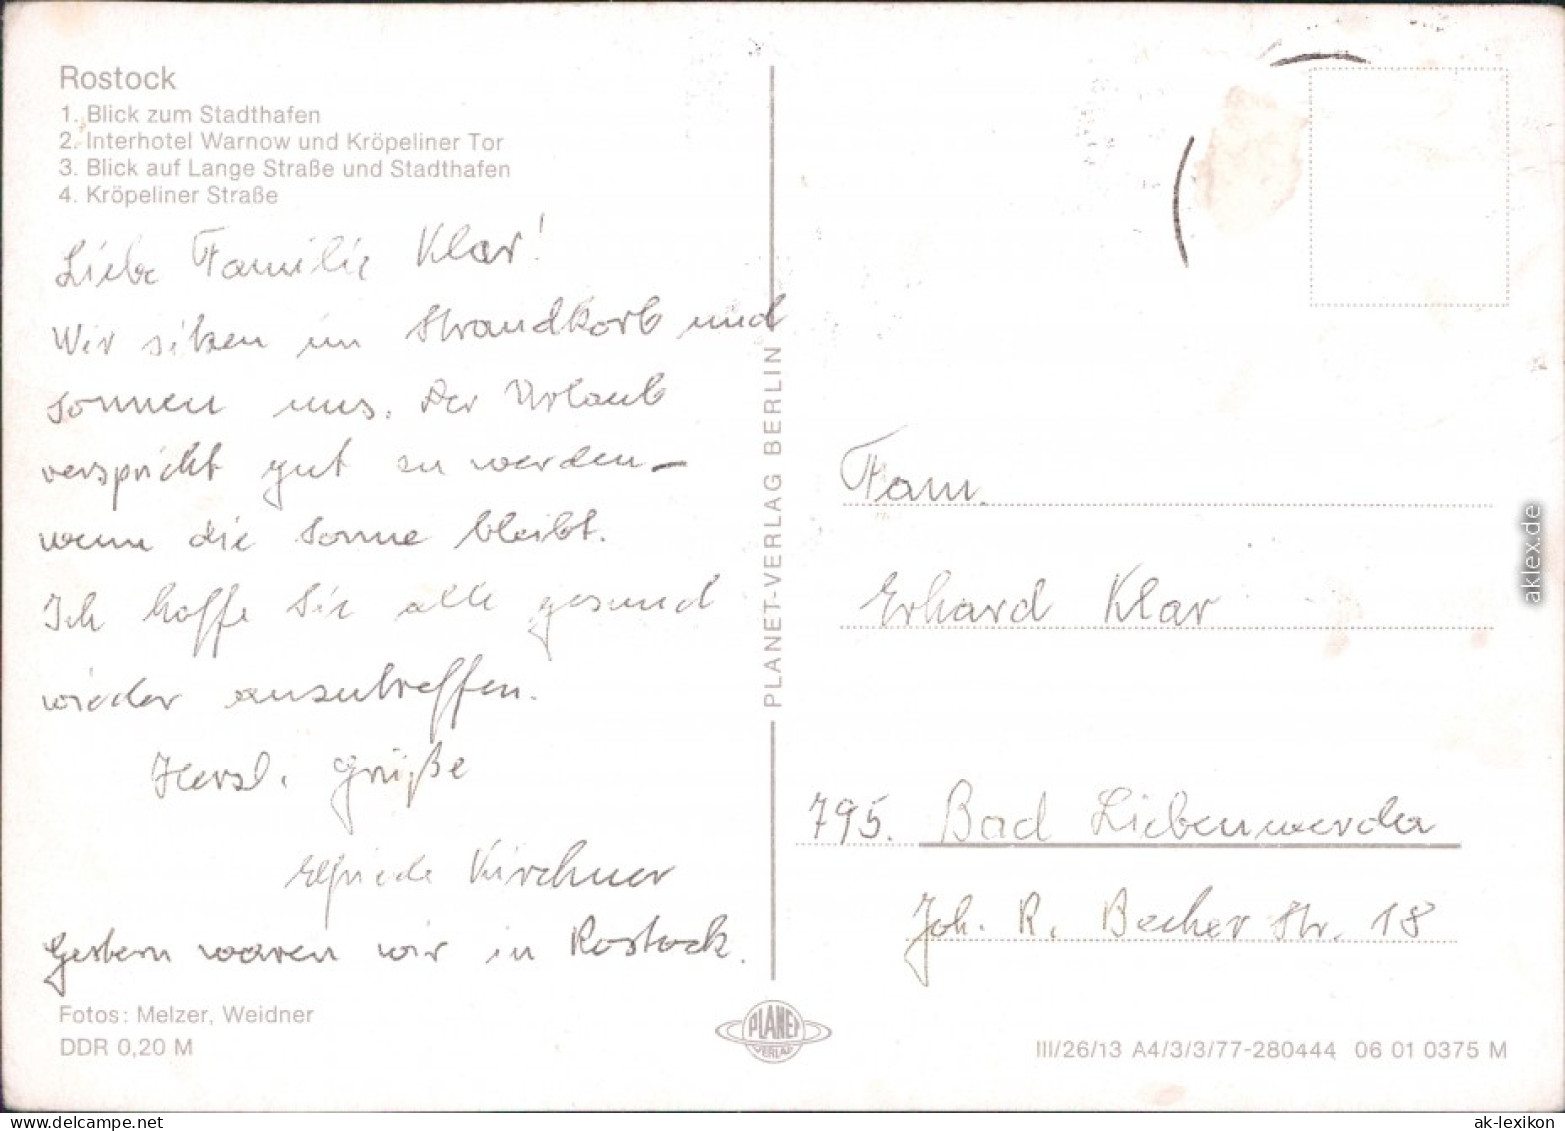 Rostock
1. Blick zum Stadthafen
2. Interhotel Warnow und Kröpeliner Tor
3. Blick auf Lange Straße und Stadthafen
4. Kröpeliner Straße
Liebe Familie Klar!
Wir sitzen im Strandkorb und
sonnen uns. Der Urlaub
verspricht gut zu werden –
wenn die Sonne bleibt.
Ich hoffe Sie alle gesund
wieder anzutreffen.
Herzl. Grüße
Elfriede Kirchner
Gestern waren wir in Rostock.
Fotos: Melzer, Weidner
DDR 0,20 M
PLANET-VERLAG BERLIN
PLANET
VERLAG
Fam.
Erhard Klar
795. Bad Liebenwerda
Joh. R. Becher Str. 18
III/26/13 A4/3/3/77-280444 06 01 0375 M
aklex.de
ak-lexikon